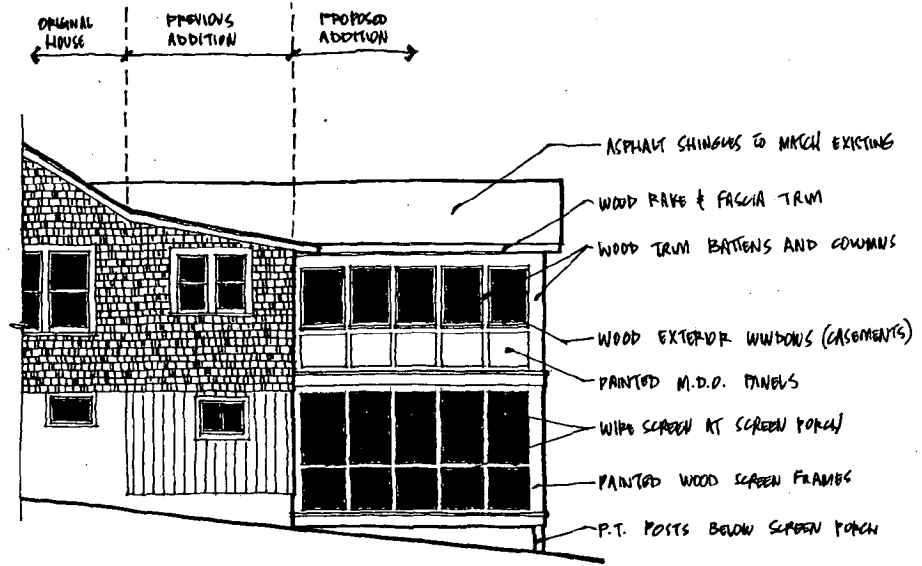 ORIGINAL
HOUSE
PREVIOUS
ADDITION
PROPOSED
ADDITION
ASPHALT SHINGLES TO MATCH EXISTING
WOOD RAKE & FASCIA TRIM
WOOD TRIM BATTENS AND COLUMNS
WOOD EXTERIOR WINDOWS (CASEMENTS)
PAINTED M.D.O. PANELS
WIRE SCREEN AT SCREEN PORCH
PAINTED WOOD SCREEN FRAMES
P.T. POSTS BELOW SCREEN PORCH